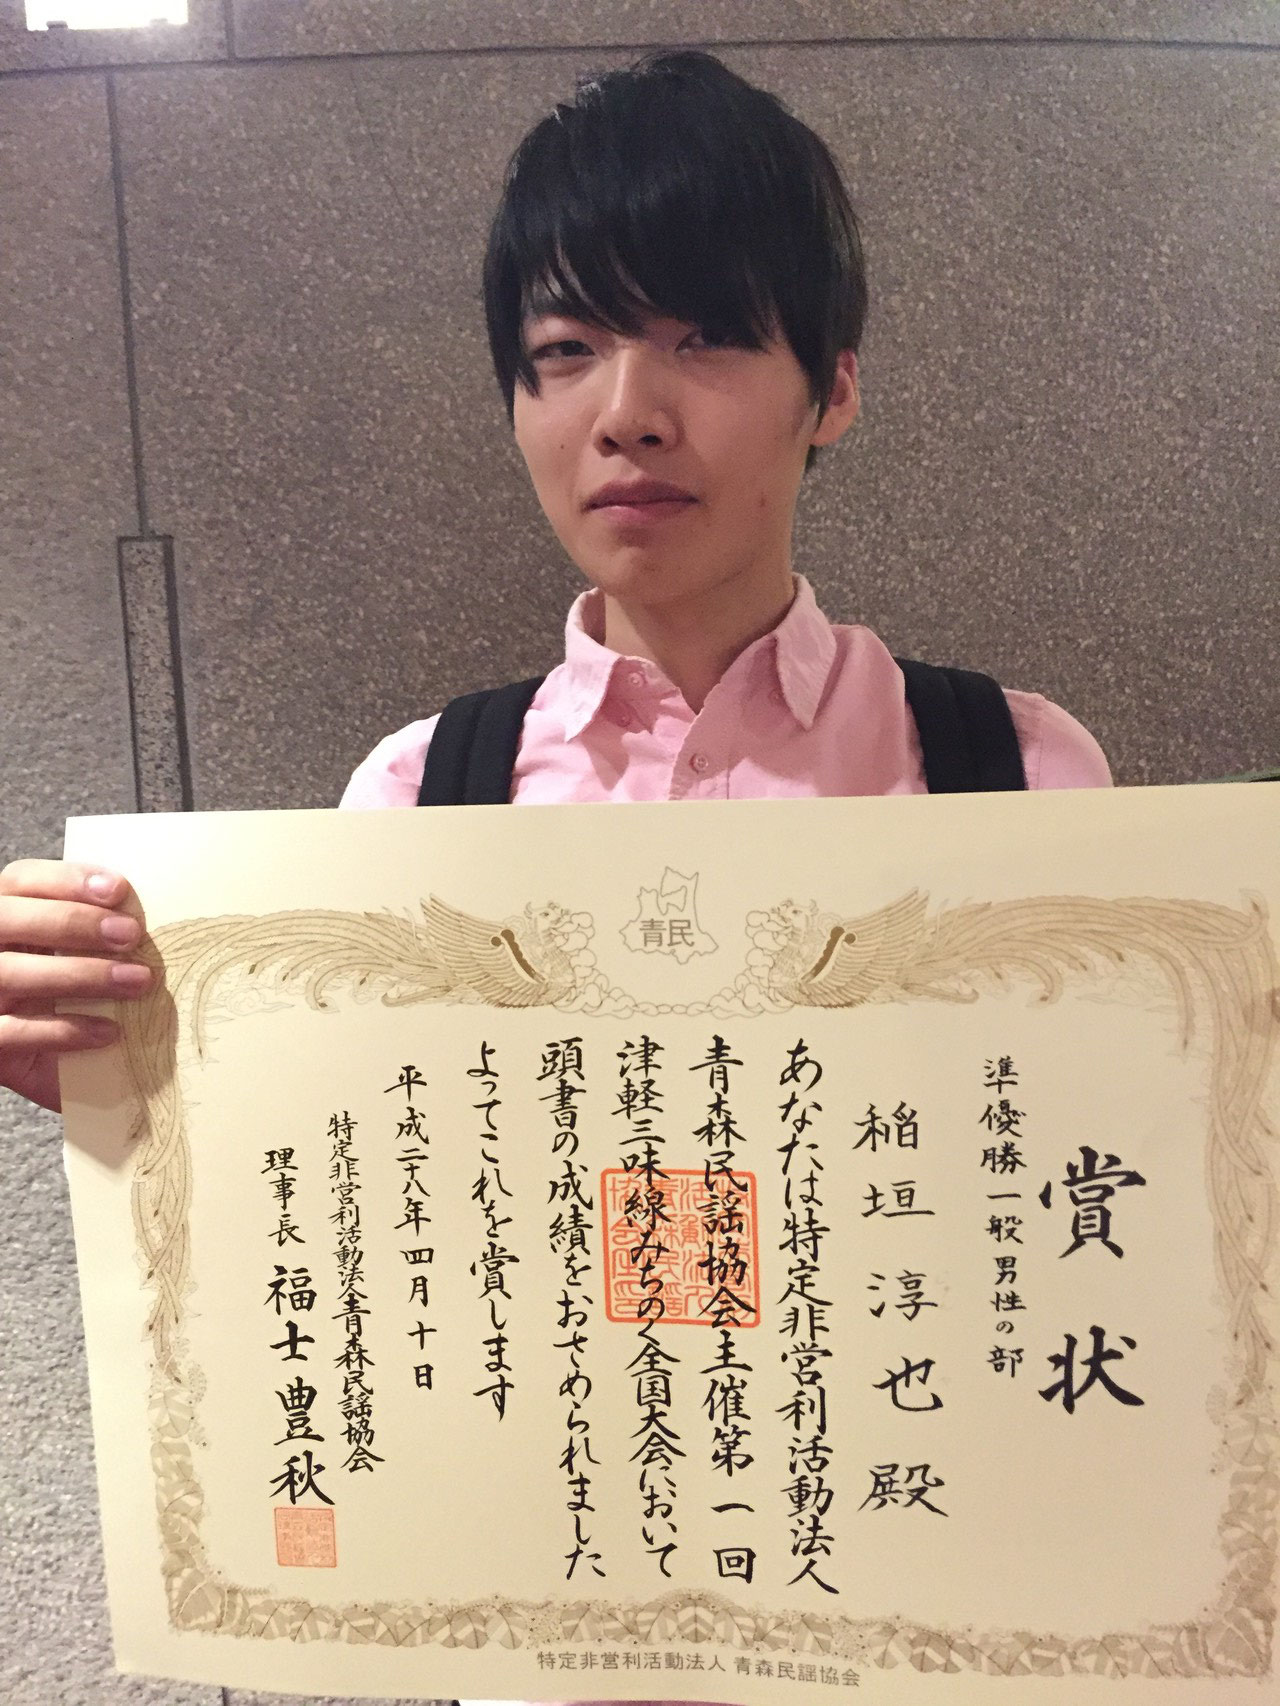 青民
賞状
準優勝 一般男性の部
稲垣淳也殿
あなたは特定非営利活動法人
青森民謡協会主催第一回
津軽三味線みちのく全国大会において
頭書の成績をおさめられました
よってこれを賞します
平成二十八年四月十日
特定非営利活動法人青森民謡協会
理事長 福士豊秋
特定非営利活動法人 青森民謡協会